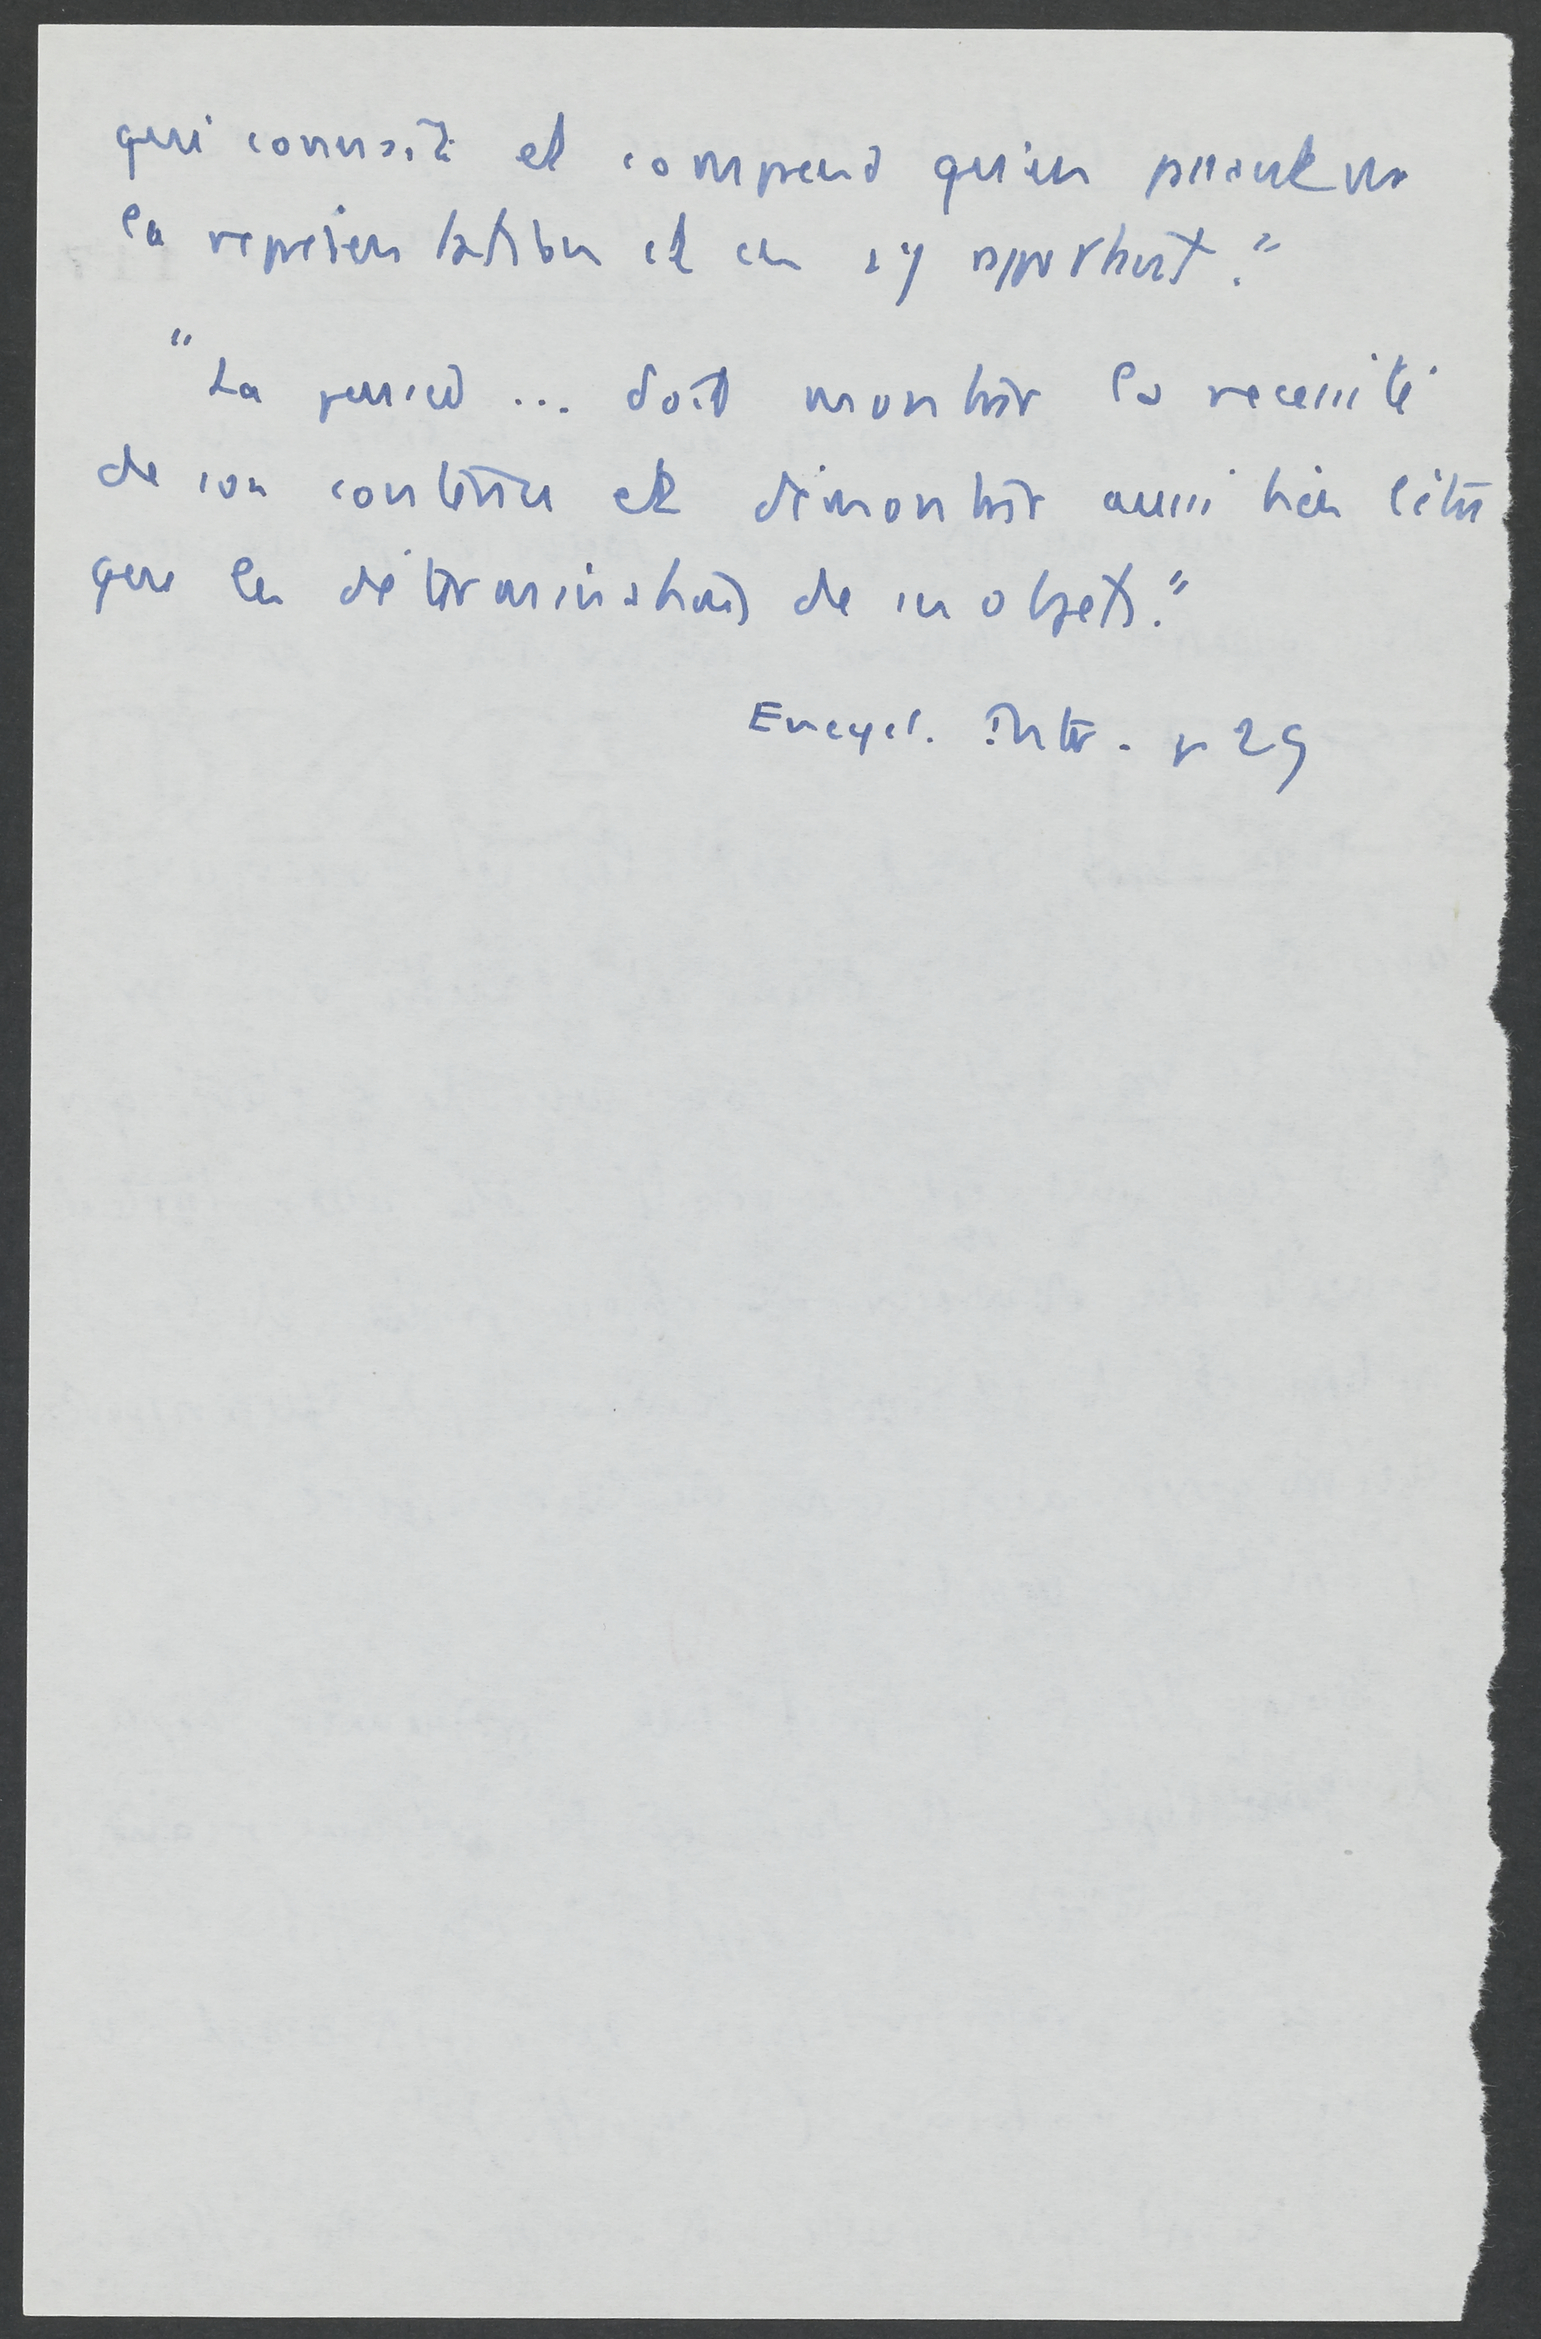 qui connaît et comprend qu'en passant par
la représentation et en s'y appuyant."
"La pensée ... doit montrer la nécessité
de son contenu et démontrer aussi bien l'être
que les déterminations de ses objets."
Encycl. Intr. p 29